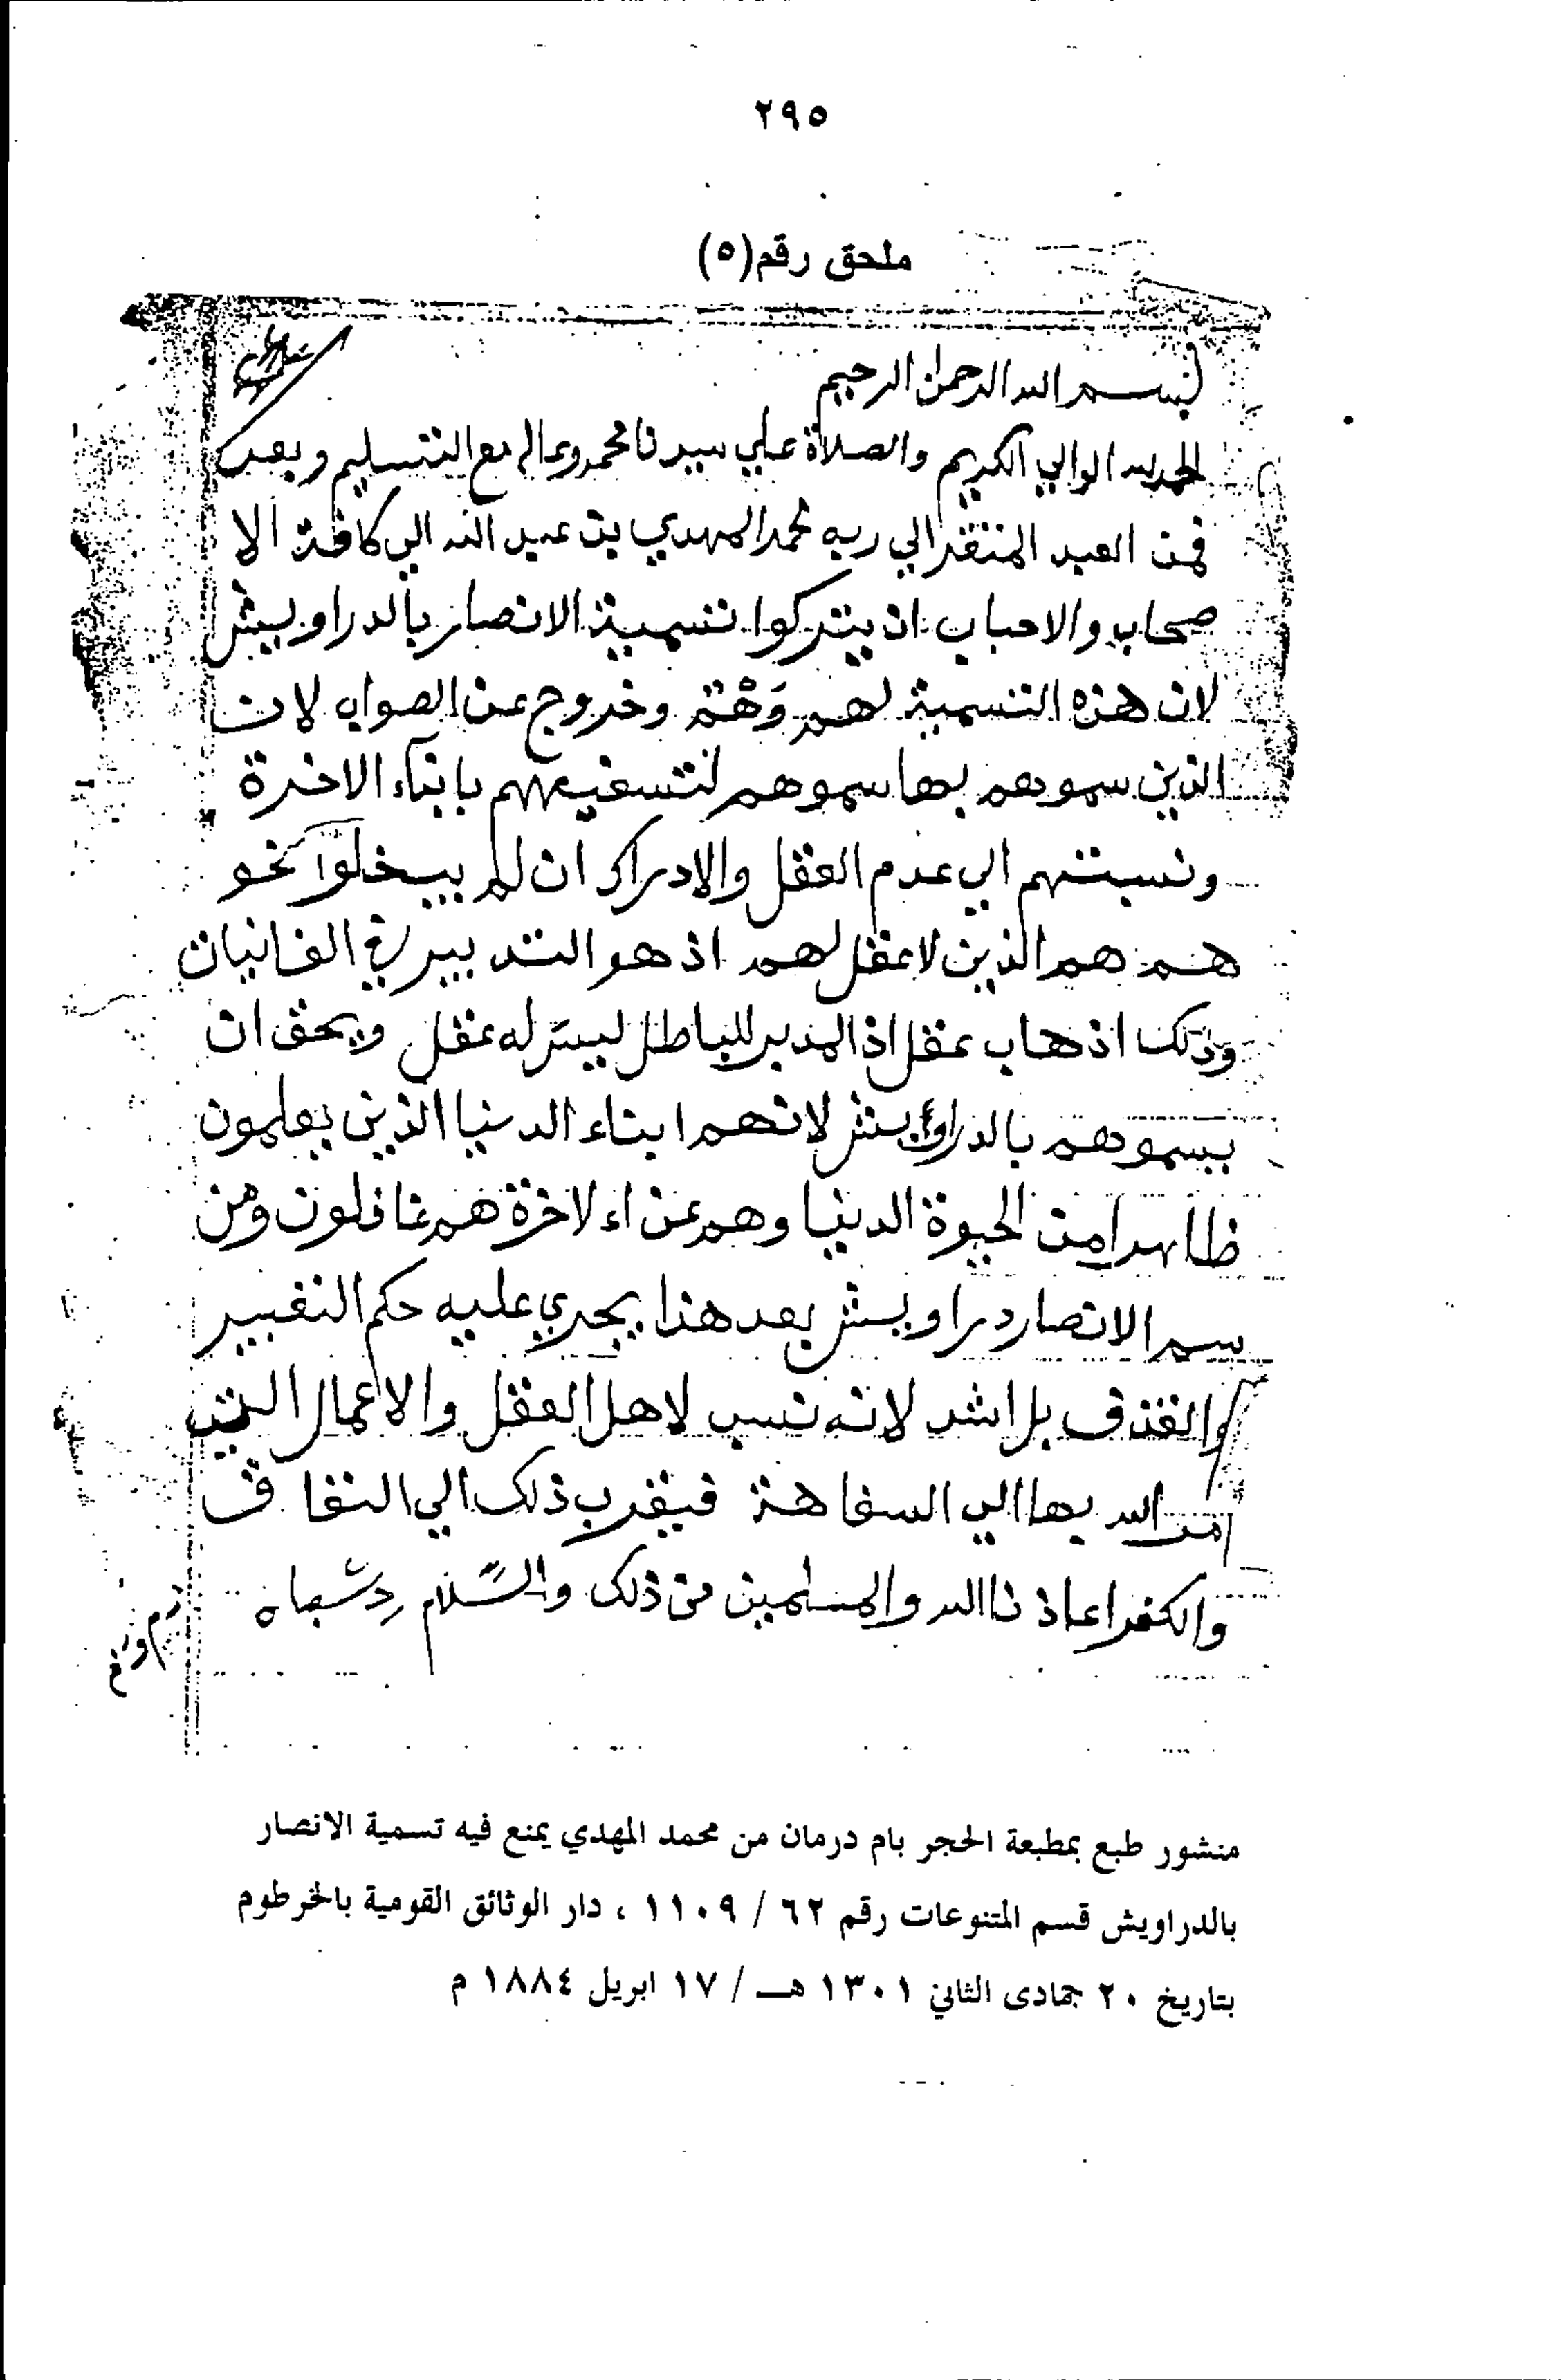 ٢٩٥
ملحق رقم (٥)
بسم الله الرحمن الرحيم
الحمد لله الوالي الكريم والصلاة علي سيدنا محمد وءاله مع التسليم وبعد
فمن العبد المفتقر الي ربه محمد المهدي بن عبد الله الي كافة الا
صحاب والاحباب ان يتركوا تسمية الانصار بالدراويش
لان هذه التسمية لهم وخروج عن الصواب لان
الذين سموهم بها سموهم لتسفيههم بابناء الاخرة
ونسبتهم الي عدم العقل والادراك ان لم يدخلوا نحو
هم هم الذين لا عقل لهم اذ هو التدبير في الفانيات
وذلك اذهاب عقل اذ المدبر للباطل ليس له عقل ويحق ان
يسموهم بالدراويش لانهم ابناء الدنيا الذين يعلمون
ظاهرا من الحيوة الدنيا وهم عن الاءخرة هم غافلون ومن
سم الانصار دراويش بعد هذا يجري عليه حكم التغيير
والقذف بل اشد لانه نسب لاهل العقل والاعمال التي
امر الله بها الي السفاهة فيقرب ذلك الي النفاق
والكفر اعاذنا الله والمسلمين من ذلك والسلام
منشور طبع بمطبعة الحجر بام درمان من محمد المهدي يمنع فيه تسمية الانصار
بالدراويش قسم المتنوعات رقم ٦٢ / ١١٠٩ ، دار الوثائق القومية بالخرطوم
بتاريخ ٢٠ جمادى الثاني ١٣٠١ هـ / ١٧ ابريل ١٨٨٤ م